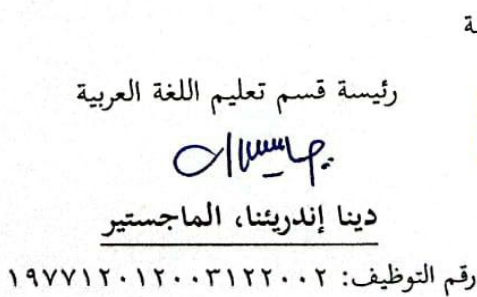 ة
رئيسة قسم تعليم اللغة العربية
دينا إندريئنا، الماجستير
رقم التوظيف: ١٩٧٧١٢٠١٢٠٠٣١٢٢٠٠٢